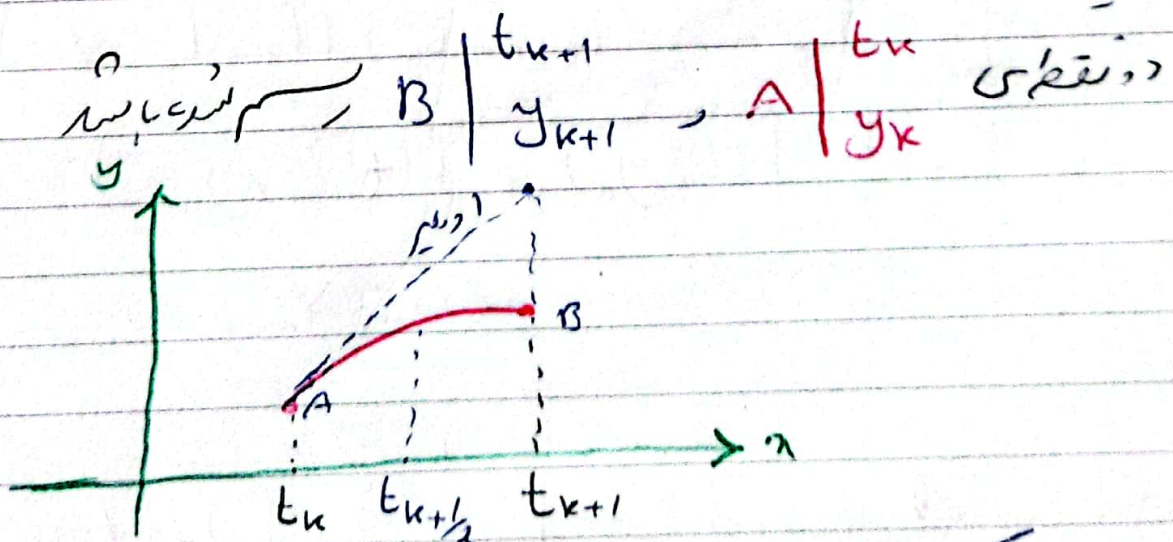 دو نقطه‌ی A | t_k y_k , B | t_{k+1} y_{k+1} رسم شده باشد
y
اویلر
B
A
x
t_k t_{k+1/2} t_{k+1}